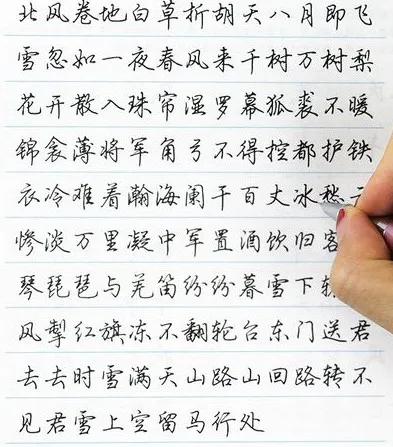 北风卷地白草折胡天八月即飞
雪忽如一夜春风来千树万树梨
花开散入珠帘湿罗幕狐裘不暖
锦衾薄将军角弓不得控都护铁
衣冷难着瀚海阑干百丈冰愁
惨淡万里凝中军置酒饮归客
琴琵琶与羌笛纷纷暮雪下
风掣红旗冻不翻轮台东门送君
去去时雪满天山路山回路转不
见君雪上空留马行处